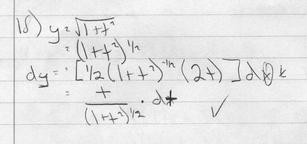 18) y = √(1+t²)
= (1+t²)^1/2
dy = [1/2 (1+t²)^-1/2 (2t)] d
= t/(1+t²)^1/2 · dt ✓